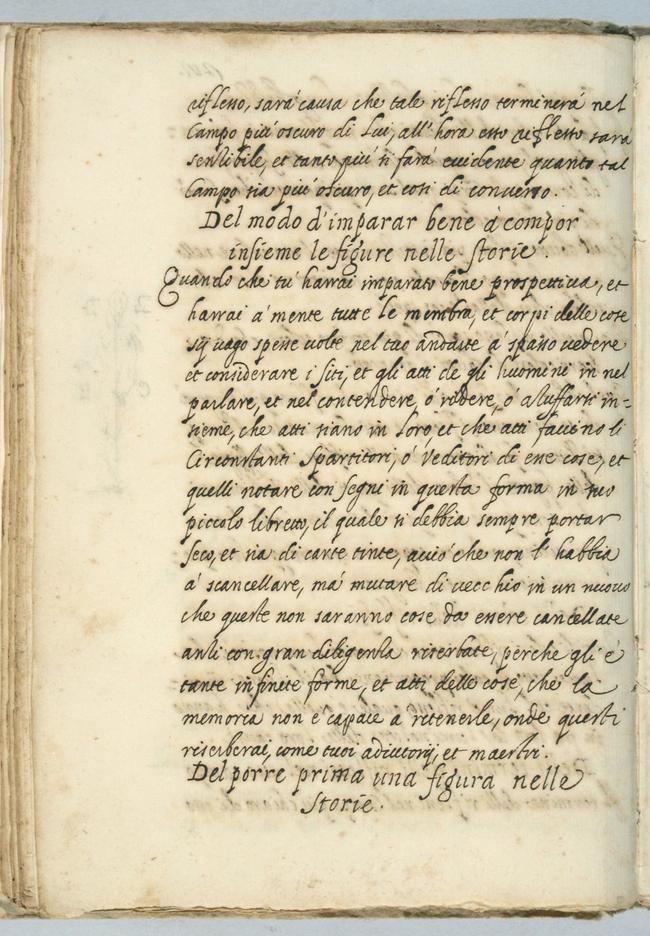 riflesso, sarà causa che tale riflesso terminerà nel
Campo più oscuro di Lui, all'hora esso riflesso sarà
sensibile, et tanto più si farà evidente quanto tal
Campo sia più oscuro, et così di converso.
Del modo d'imparar bene à compor
insieme le figure nelle storie.
Quando che tù harrai imparato bene prospettiva, et
harrai à mente tutte le membra, et corpi delle cose
sij vago spesse volte nel tuo andarte à spasso vedere
et considerare i siti, et gli atti de gli huomini in nel
parlare, et nel contendere, ò ridere, ò azzuffarsi in=
sieme, che atti siano in loro, et che atti faccino li
Circonstanti spartitori, ò veditori di esse cose, et
quelli notare con segni in questa forma in tuo
piccolo libretto, il quale si debbia sempre portar
seco, et sia di carte tinte, acciò che non l'habbia
à scancellare, mà mutare di vecchio in un nuovo
che queste non saranno cose da essere cancellate
anzi con gran diligenza riserbate, perche gli è
tante infinite forme, et atti delle cose, che la
memoria non è capace à ritenerle, onde questi
riserberai, come tuoi adiutorij, et maestri.
Del porre prima una figura nelle
storie.